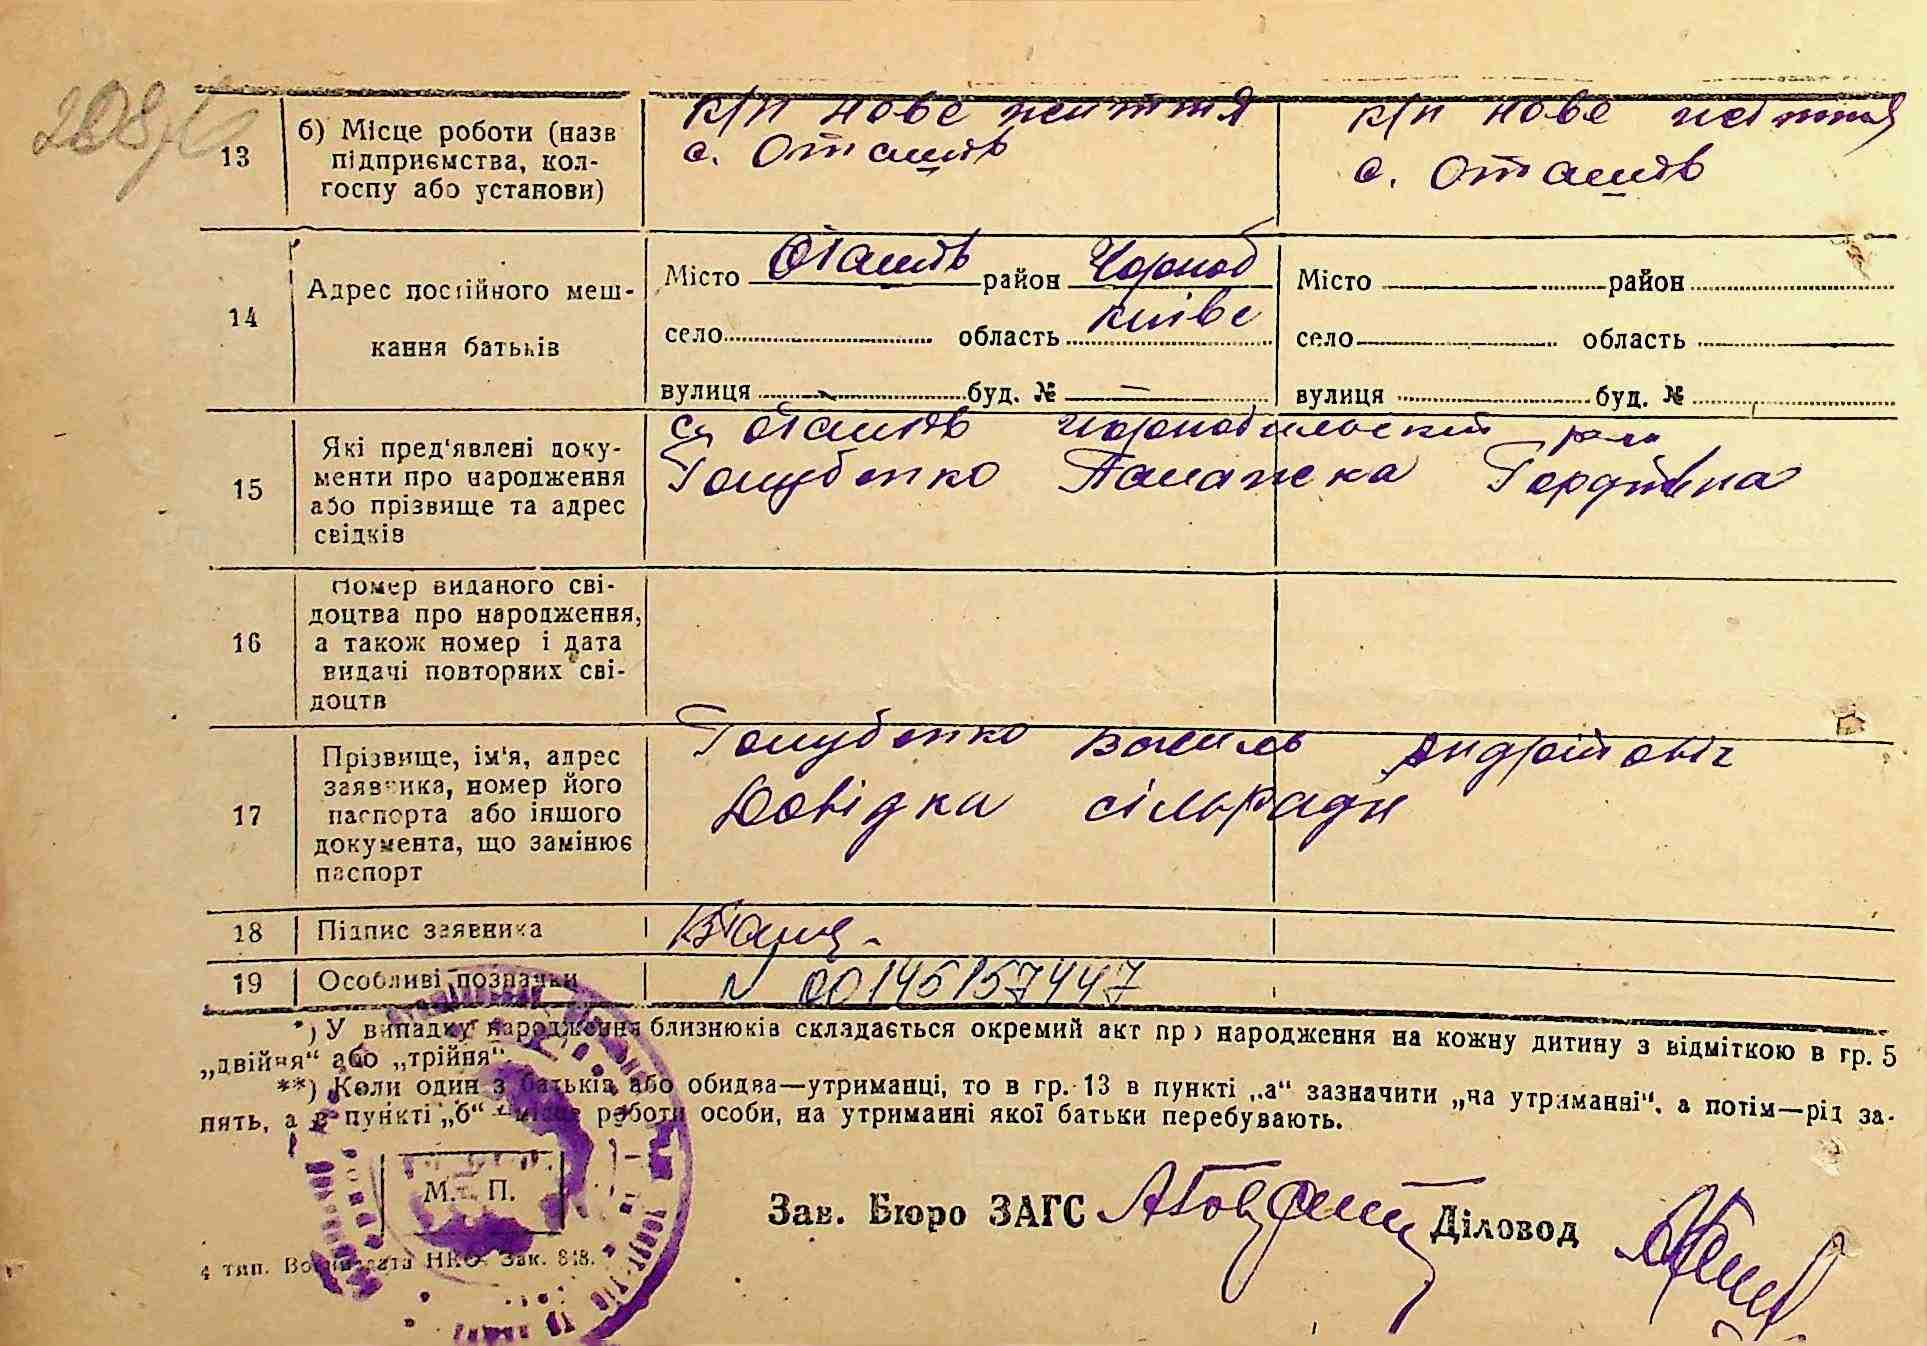 13
б) Місце роботи (назв
підприємства, кол-
госпу або установи)
к/п нове життя
с. Оташів
к/п нове життя
с. Оташів
14
Адрес постійного меш-
кання батьків
Місто Оташів район Чорноб
село область Київс
вулиця буд. № —
Місто район
село область
вулиця буд. №
15
Які пред'явлені доку-
менти про народження
або прізвище та адрес
свідків
с. Оташів Чорнобильский
Голубенко Палажка Гордіївна
16
Номер виданого сві-
доцтва про народження,
а також номер і дата
видачі повторних сві-
доцтв
17
Прізвище, ім'я, адрес
заявника, номер його
паспорта або іншого
документа, що замінює
паспорт
Голубенко Василь Андрійовіч
Довідка сільради
18
Підпис заявника
19
Особливі позначки
N 00145157447
*) У випадку народження близнюків складається окремий акт про народження на кожну дитину з відміткою в гр. 5
„двійня“ або „трійня“.
**) Коли один з батьків або обидва—утриманці, то в гр. 13 в пункті „а“ зазначити „на утриманні“, а потім—рід за-
нять, а в пункті „б“ — місце роботи особи, на утриманні якої батьки перебувають.
М. П.
Зав. Бюро ЗАГС
Діловод
4 тип. Воениздата НКО. Зак. 848.